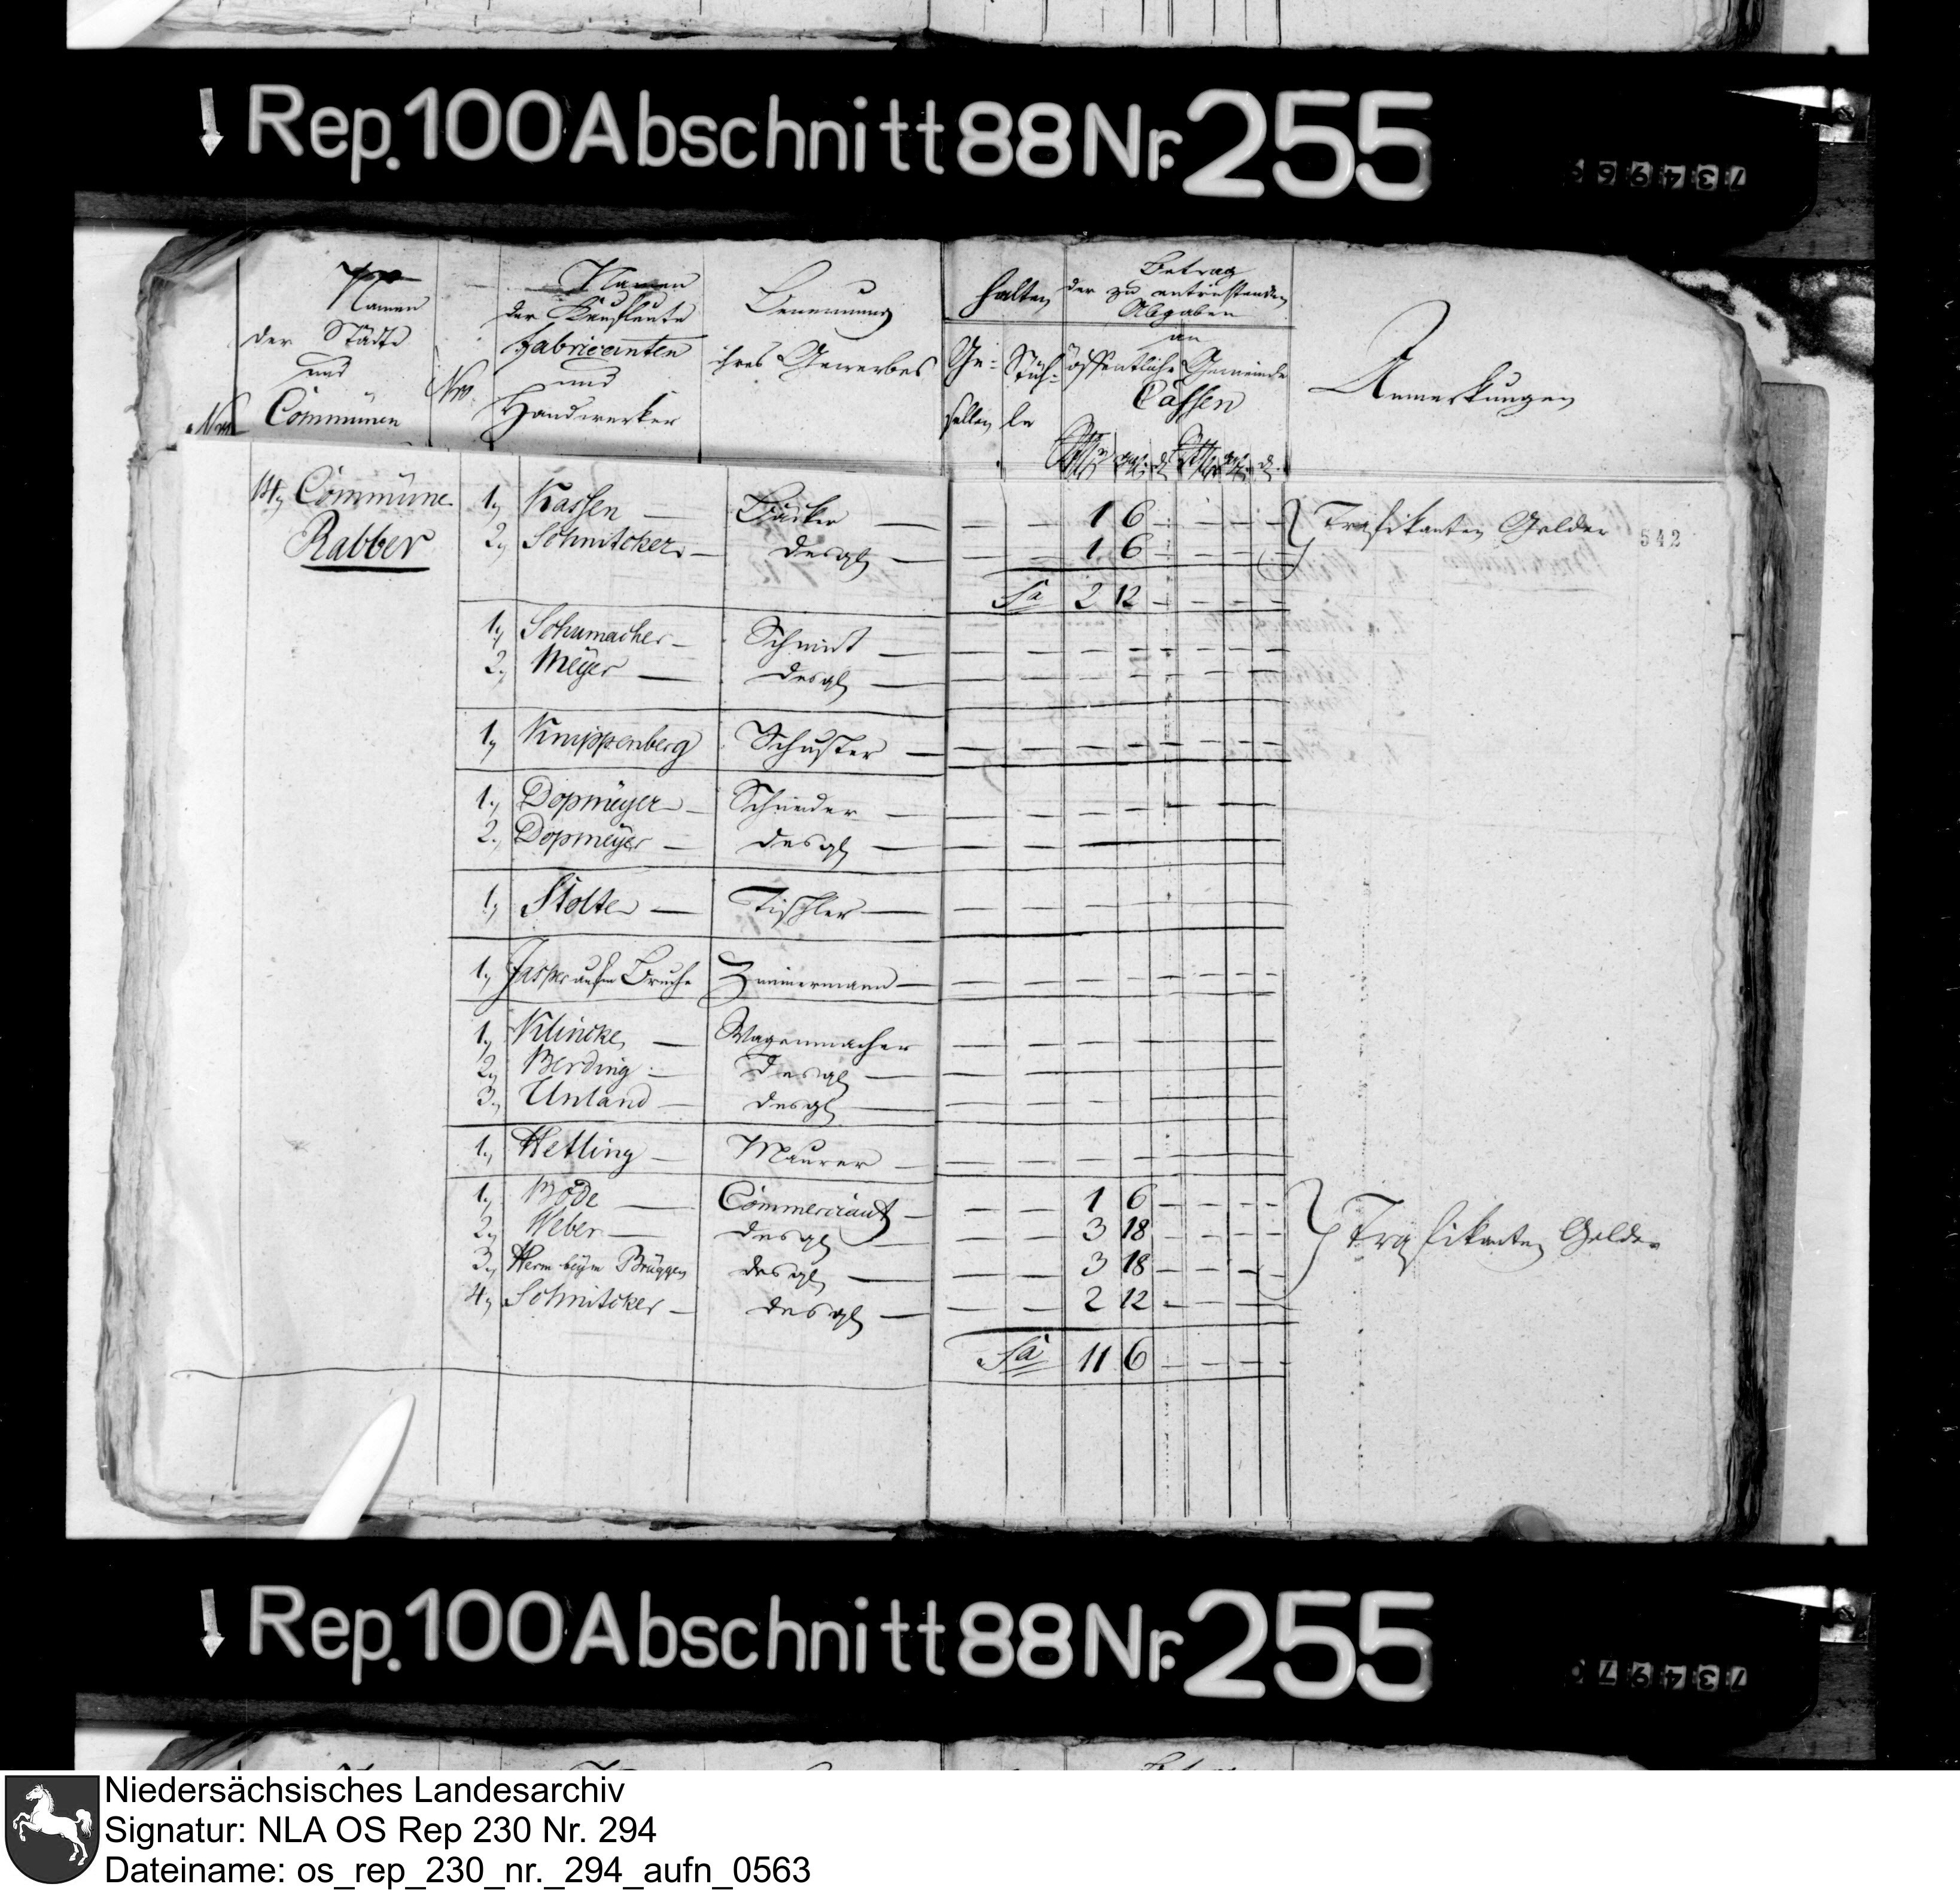 Rep. 100 Abschnitt 88 Nr. 255
Namen
der Städte
und
Communen
Nro
Nro
Namen
der Kaufleute
Fabricanten
und
Handwerker
Benennung
ihres Gewerbes
halten
Ge-
sellen
Stüh-
le
Betrag
der zu entrichtenden
Abgaben
an
öffentliche Gemeinde
Cassen
Anmerkungen
542
14, Commune
Rabber
1, Kassen — Bäcker — — — 1 6 - - - - Trafikanten Gelder
2, Schnitcker — desgl — — — 1 6 - - - -
Sa 2 12 - - - -
1, Schumacher — Schmidt — — — — — - - - -
2, Meÿer — desgl — — — — — - - - -
1, Knippenberg Schuster — — — — — - - - -
1, Dopmeÿer — Schneider — — — — — - - -
2, Dopmeÿer — desgl — — — —
1, Stolte — Tischler — — — — — - - - -
1, Jasper aufm Bruche Zimmermann — — — — — - - - -
1, Klincke — Wagenmacher — — — —
2, Berding — Desgl — — — —
3, Unland — desgl — — — —
1, Hetling — Maurer — — — — —
1, Bode — Commerciant — — — 1 6 - - - - Trafikanten Gelder
2, Weber — desgl — — — 3 18 - - - -
3, Herm beÿm Brüggen desgl — — — 3 18 - - - -
4, Schnitcker — desgl — — — 2 12 - - - -
Sa 11 6 - - - -
Rep. 100 Abschnitt 88 Nr. 255
Niedersächsisches Landesarchiv
Signatur: NLA OS Rep 230 Nr. 294
Dateiname: os_rep_230_nr._294_aufn_0563